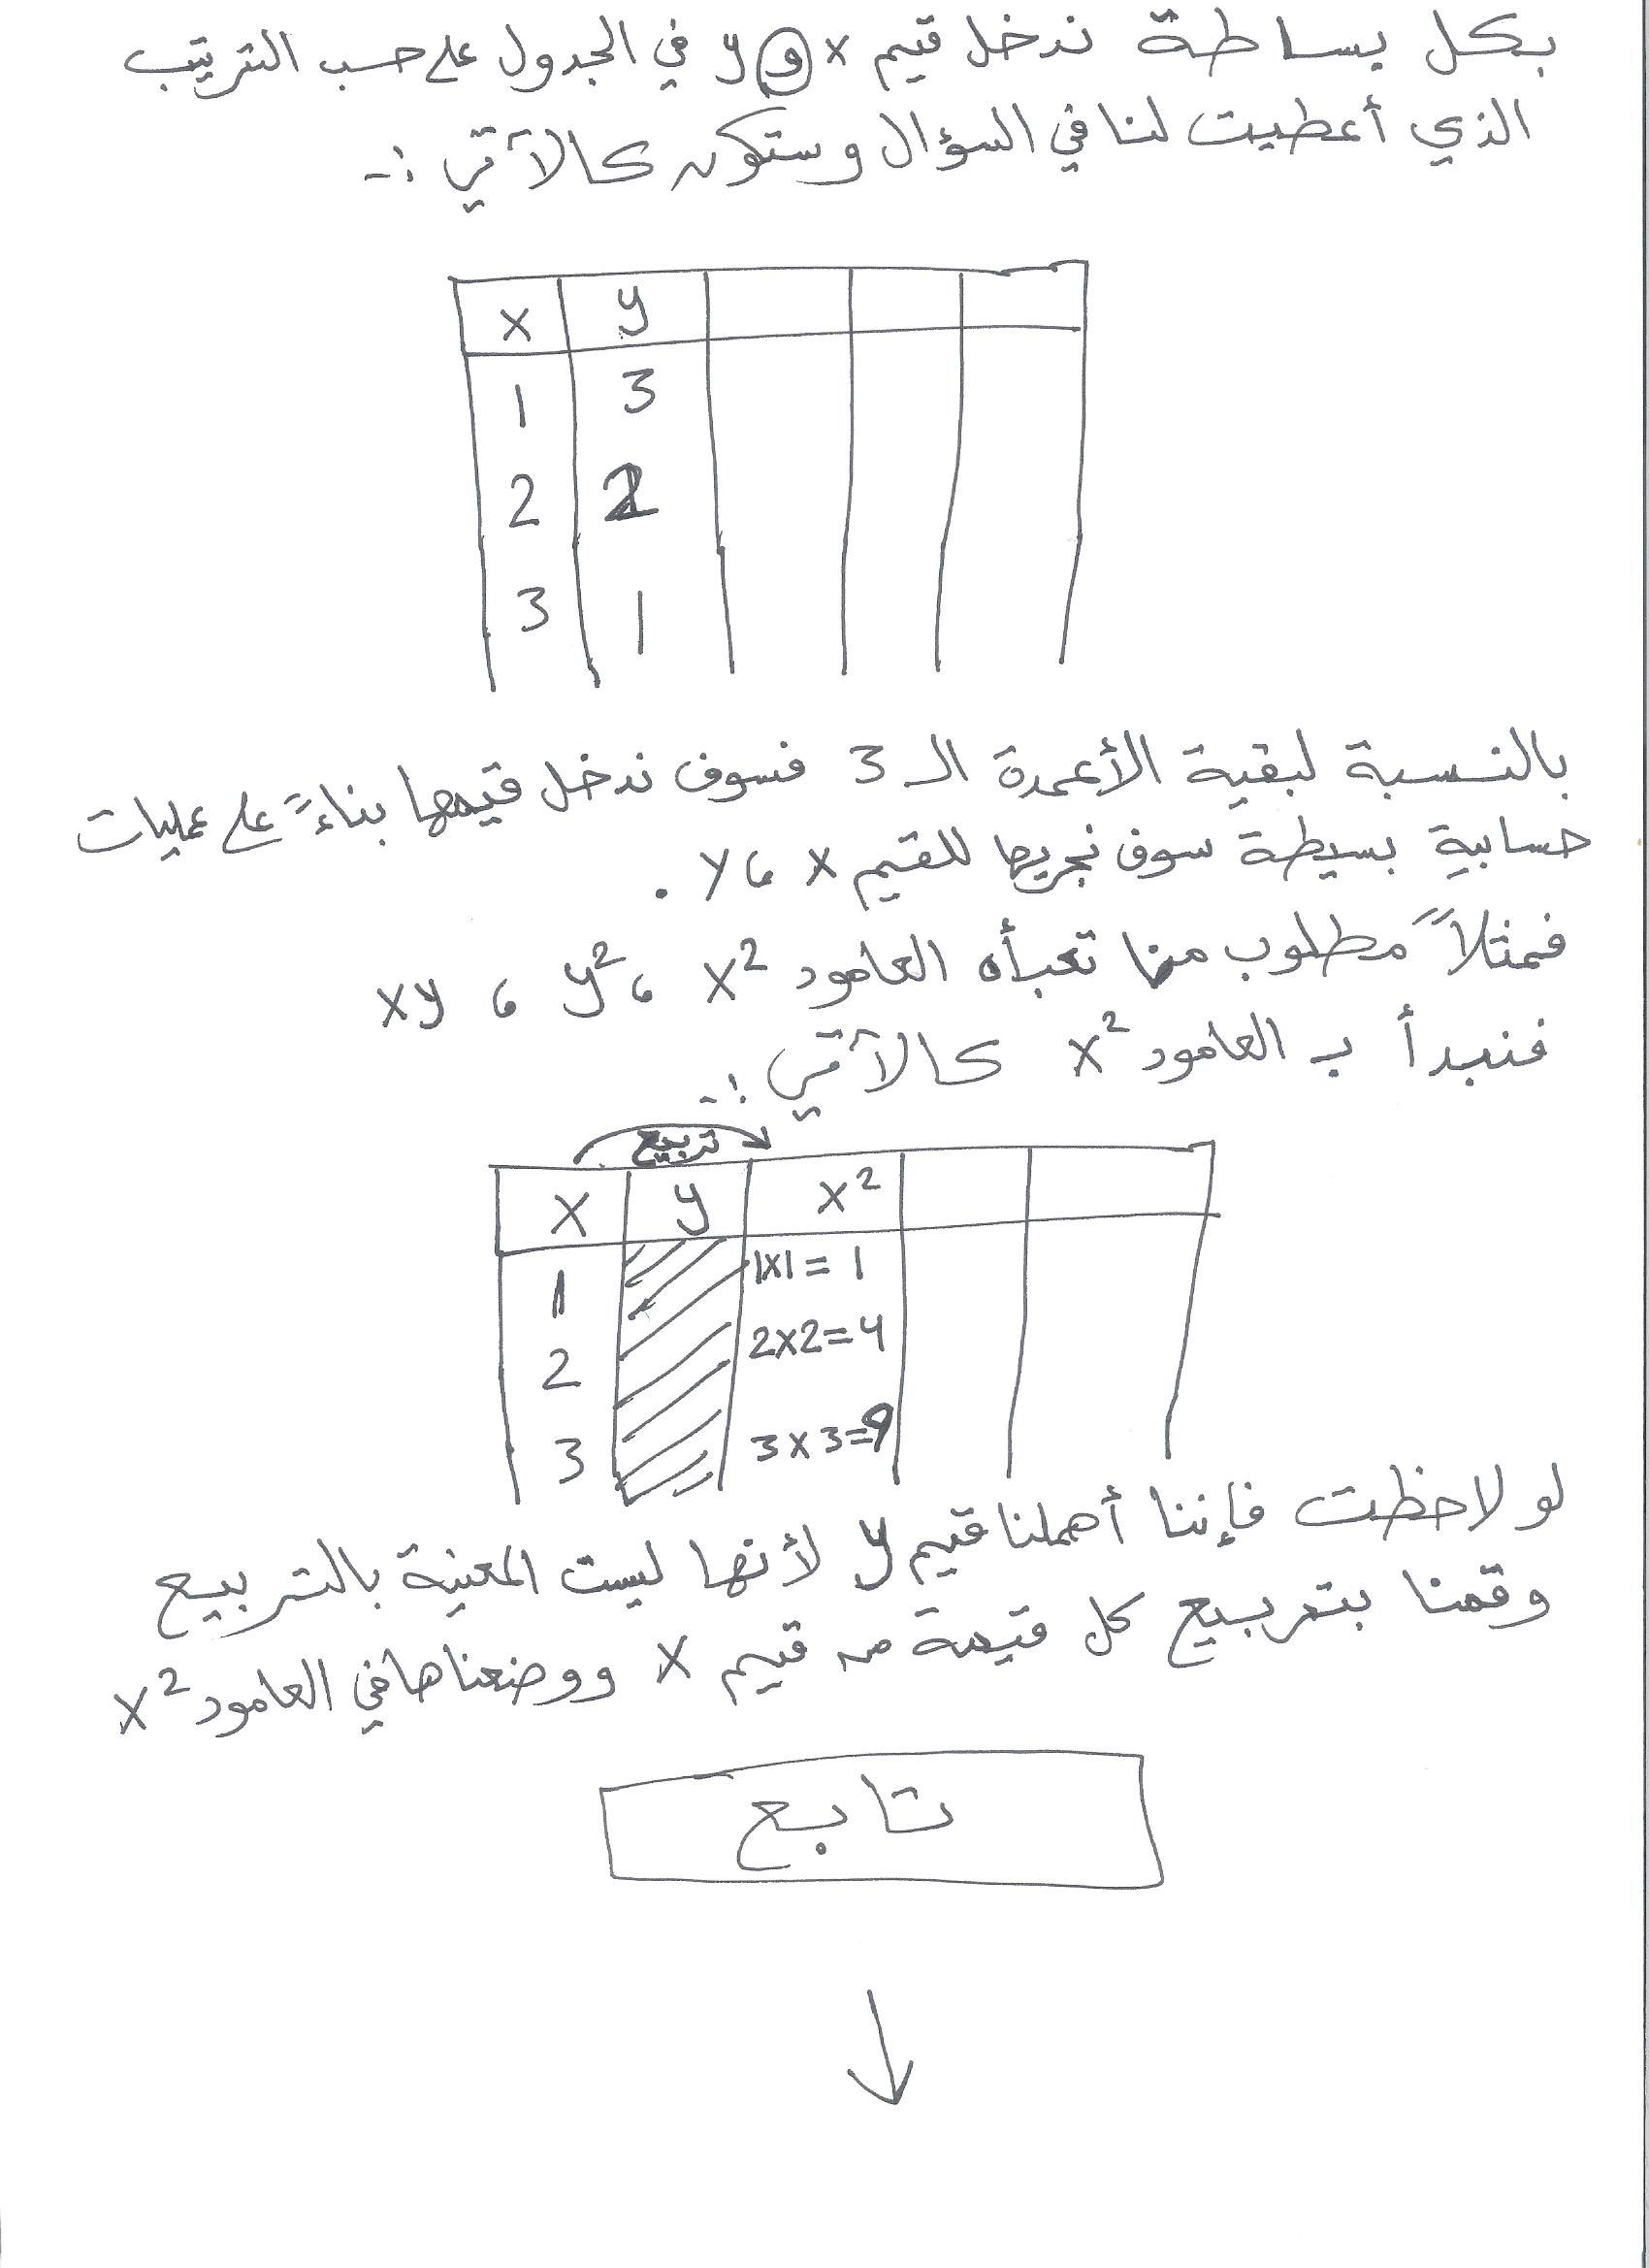 بكل بساطة ندخل قيم x و y في الجدول على حسب الترتيب
الذي أعطيت لنا في السؤال وستكون كالآتي :-
x y
1 3
2 2
3 1
بالنسبة لبقية الأعمدة الـ 3 فسوف ندخل قيمها بناءً على عمليات
حسابية بسيطة سوف نجريها للقيم x ، y .
فمثلاً مطلوب منا تعبأه العامود x² ، y² ، xy
فنبدأ بـ العامود x² كالآتي :-
تربيع
x y x²
1 1x1 = 1
2 2x2=4
3 3x3=9
لو لاحظت فإننا أهملنا قيم y لأنها ليست المعنية بالتربيع
وقمنا بتربيع كل قيمة من قيم x ووضعناها في العامود x²
تابع